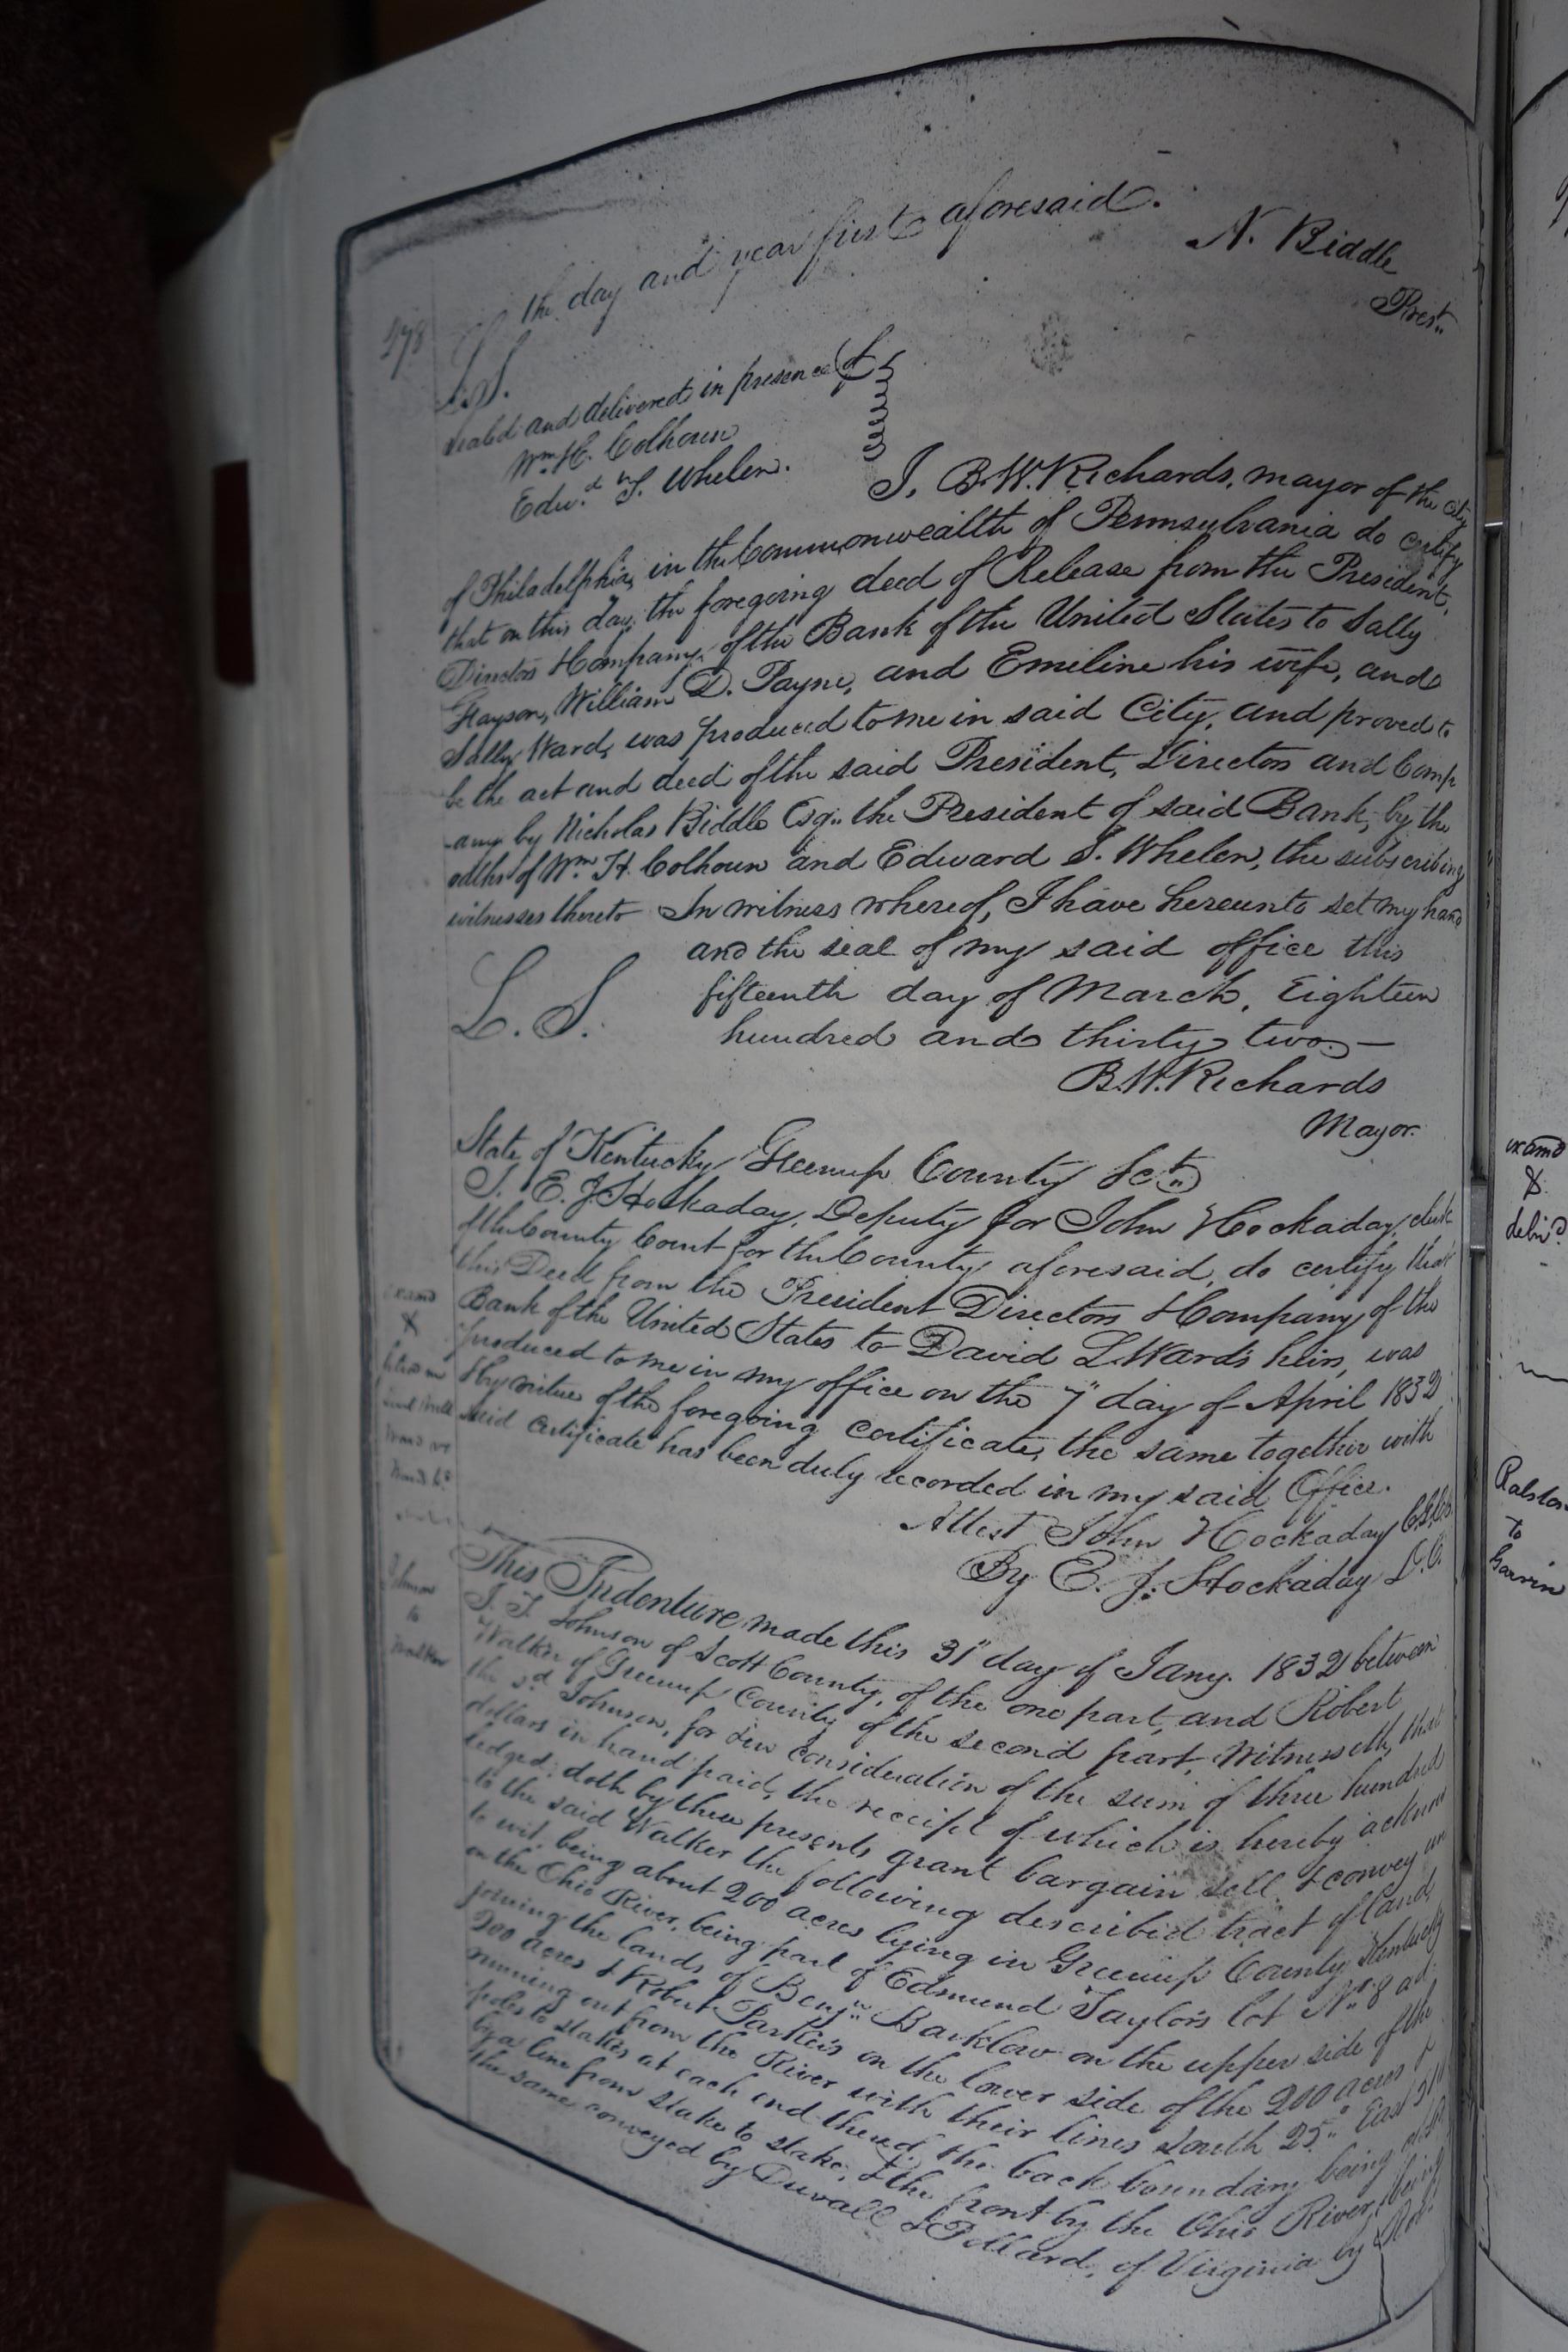 478
the day and year first aforesaid.
N. Biddle
Prest.
L.S.
sealed and delivered in presence of
Wm. H. Colhoun
Edwd. S. Whelen.
I, B.W. Richards, mayor of the City
of Philadelphia, in the Commonwealth of Pennsylvania do certify
that on this day, the foregoing deed of Release from the President,
Directors & Company, of the Bank of the United States to Sally
Grayson, William D. Payne, and Emiline his wife, and
Sally Ward, was produced to me in said City, and proved to
be the act and deed of the said President, Directors and Comp
any by Nicholas Biddle Esqr. the President of said Bank, by the
oaths of Wm. H. Colhoun and Edward S. Whelen, the subscribing
witnesses thereto In witness whereof, I have hereunto set my hand
and the seal of my said office this
L. S. fifteenth day of March, Eighteen
hundred and thirty two —
B.W. Richards
Mayor.
State of Kentucky Greenup County Sct.
I. E. J. Hockaday, Deputy for John Hockaday, clerk
of the County Court for the County aforesaid, do certify that
this Deed from the President Directors & Company of the
Bank of the United States to David L. Ward's heirs, was
produced to me in my office on the 7" day of April 1832
& by virtue of the foregoing certificate, the same together with
said certificate has been duly recorded in my said Office.
Attest John Hockaday
By E. J. Hockaday D.C.
examd
&
Johnson
to
Walker
This Indenture made this 31" day of Jany. 1832 between
J. T. Johnson of Scott County, of the one part, and Robert
Walker of Greenup County of the second part, Witnesseth, that
the sd Johnson, for & in consideration of the sum of three hundred
dollars in hand paid, the receipt of which is hereby acknow
ledged: doth by these presents grant bargain sell & convey un
to the said Walker the following described tract of land,
to wit, being about 200 acres lying in Greenup County Kentucky
on the Ohio River, being part of Edmund Taylor's lot No. 8 ad
joining the lands of Benjn. Barklow on the upper side of the
200 acres & Robert Parker's on the lower side of the 200 acres &
running out from the River with their lines South 25° East
poles to stakes at each end thereof, the back boundary being
by a line from stake to stake, & the front by the Ohio River, being
the same conveyed by Duvall & Pollard, of Virginia by
examd
&
delivd
Ralston
to
Garvin